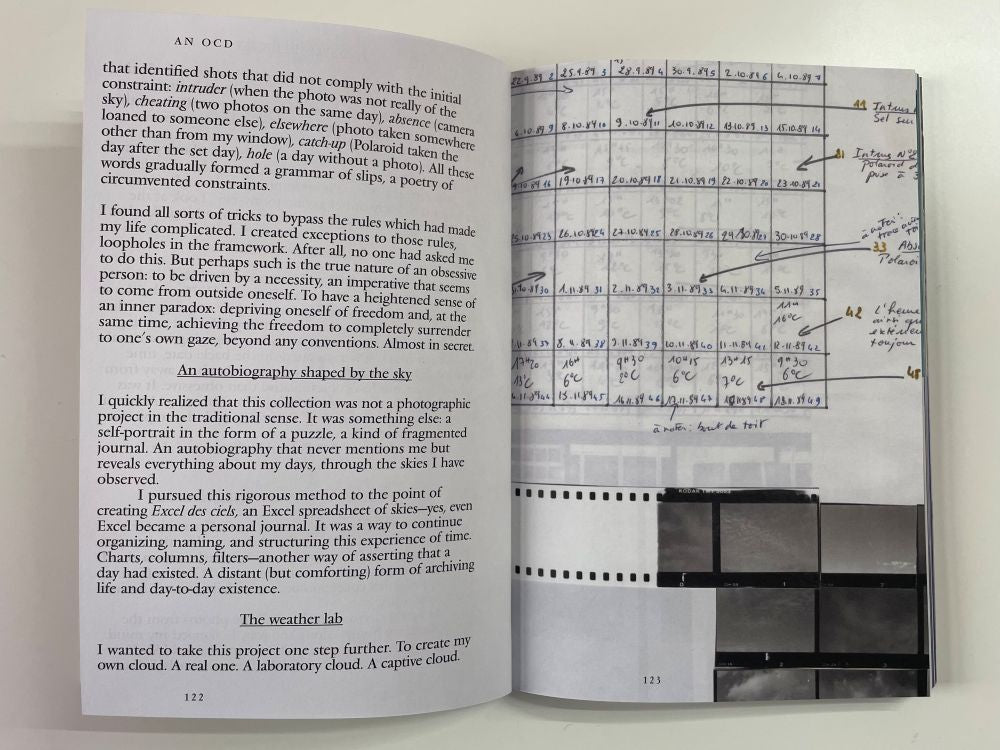 AN OCD
that identified shots that did not comply with the initial
constraint: intruder (when the photo was not really of the
sky), cheating (two photos on the same day), absence (camera
loaned to someone else), elsewhere (photo taken somewhere
other than from my window), catch-up (Polaroid taken the
day after the set day), hole (a day without a photo). All these
words gradually formed a grammar of slips, a poetry of
circumvented constraints.
I found all sorts of tricks to bypass the rules which had made
my life complicated. I created exceptions to those rules,
loopholes in the framework. After all, no one had asked me
to do this. But perhaps such is the true nature of an obsessive
person: to be driven by a necessity, an imperative that seems
to come from outside oneself. To have a heightened sense of
an inner paradox: depriving oneself of freedom and, at the
same time, achieving the freedom to completely surrender
to one's own gaze, beyond any conventions. Almost in secret.
An autobiography shaped by the sky
I quickly realized that this collection was not a photographic
project in the traditional sense. It was something else: a
self-portrait in the form of a puzzle, a kind of fragmented
journal. An autobiography that never mentions me but
reveals everything about my days, through the skies I have
observed.
I pursued this rigorous method to the point of
creating Excel des ciels, an Excel spreadsheet of skies—yes, even
Excel became a personal journal. It was a way to continue
organizing, naming, and structuring this experience of time.
Charts, columns, filters—another way of asserting that a
day had existed. A distant (but comforting) form of archiving
life and day-to-day existence.
The weather lab
I wanted to take this project one step further. To create my
own cloud. A real one. A laboratory cloud. A captive cloud.
122
25.9.89 3 28.9.89 4 30.9.89 5 2.10.89 6 4.10.89 7
11 Intrus
8.10.89 10 9.10.89 11 10.10.89 12 13.10.89 13 15.10.89 14
Intrus
Polaroid
19.10.89 17 20.10.89 18 21.10.89 19 22.10.89 20 23.10.89 21
à noter:
26.10.89 24 27.10.89 25 28.10.89 26 30.10.89 28
33 Abs
Polaroi
1.11.89 31 2.11.89 32 3.11.89 33 4.11.89 34 5.11.89 35
11H
16°C
42 L'heure
toujour
8.11.89 38 9.11.89 39 10.11.89 40 11.11.89 41 12.11.89 42
17H20 16H 9H30 10H15 13H15 9H30
13°C 6°C 2°C 6°C 7°C 6°C
48
15.11.89 45 16.11.89 46 17.11.89 47 48 19.11.89 49
à noter: bout de toit
KODAK
0 1
123